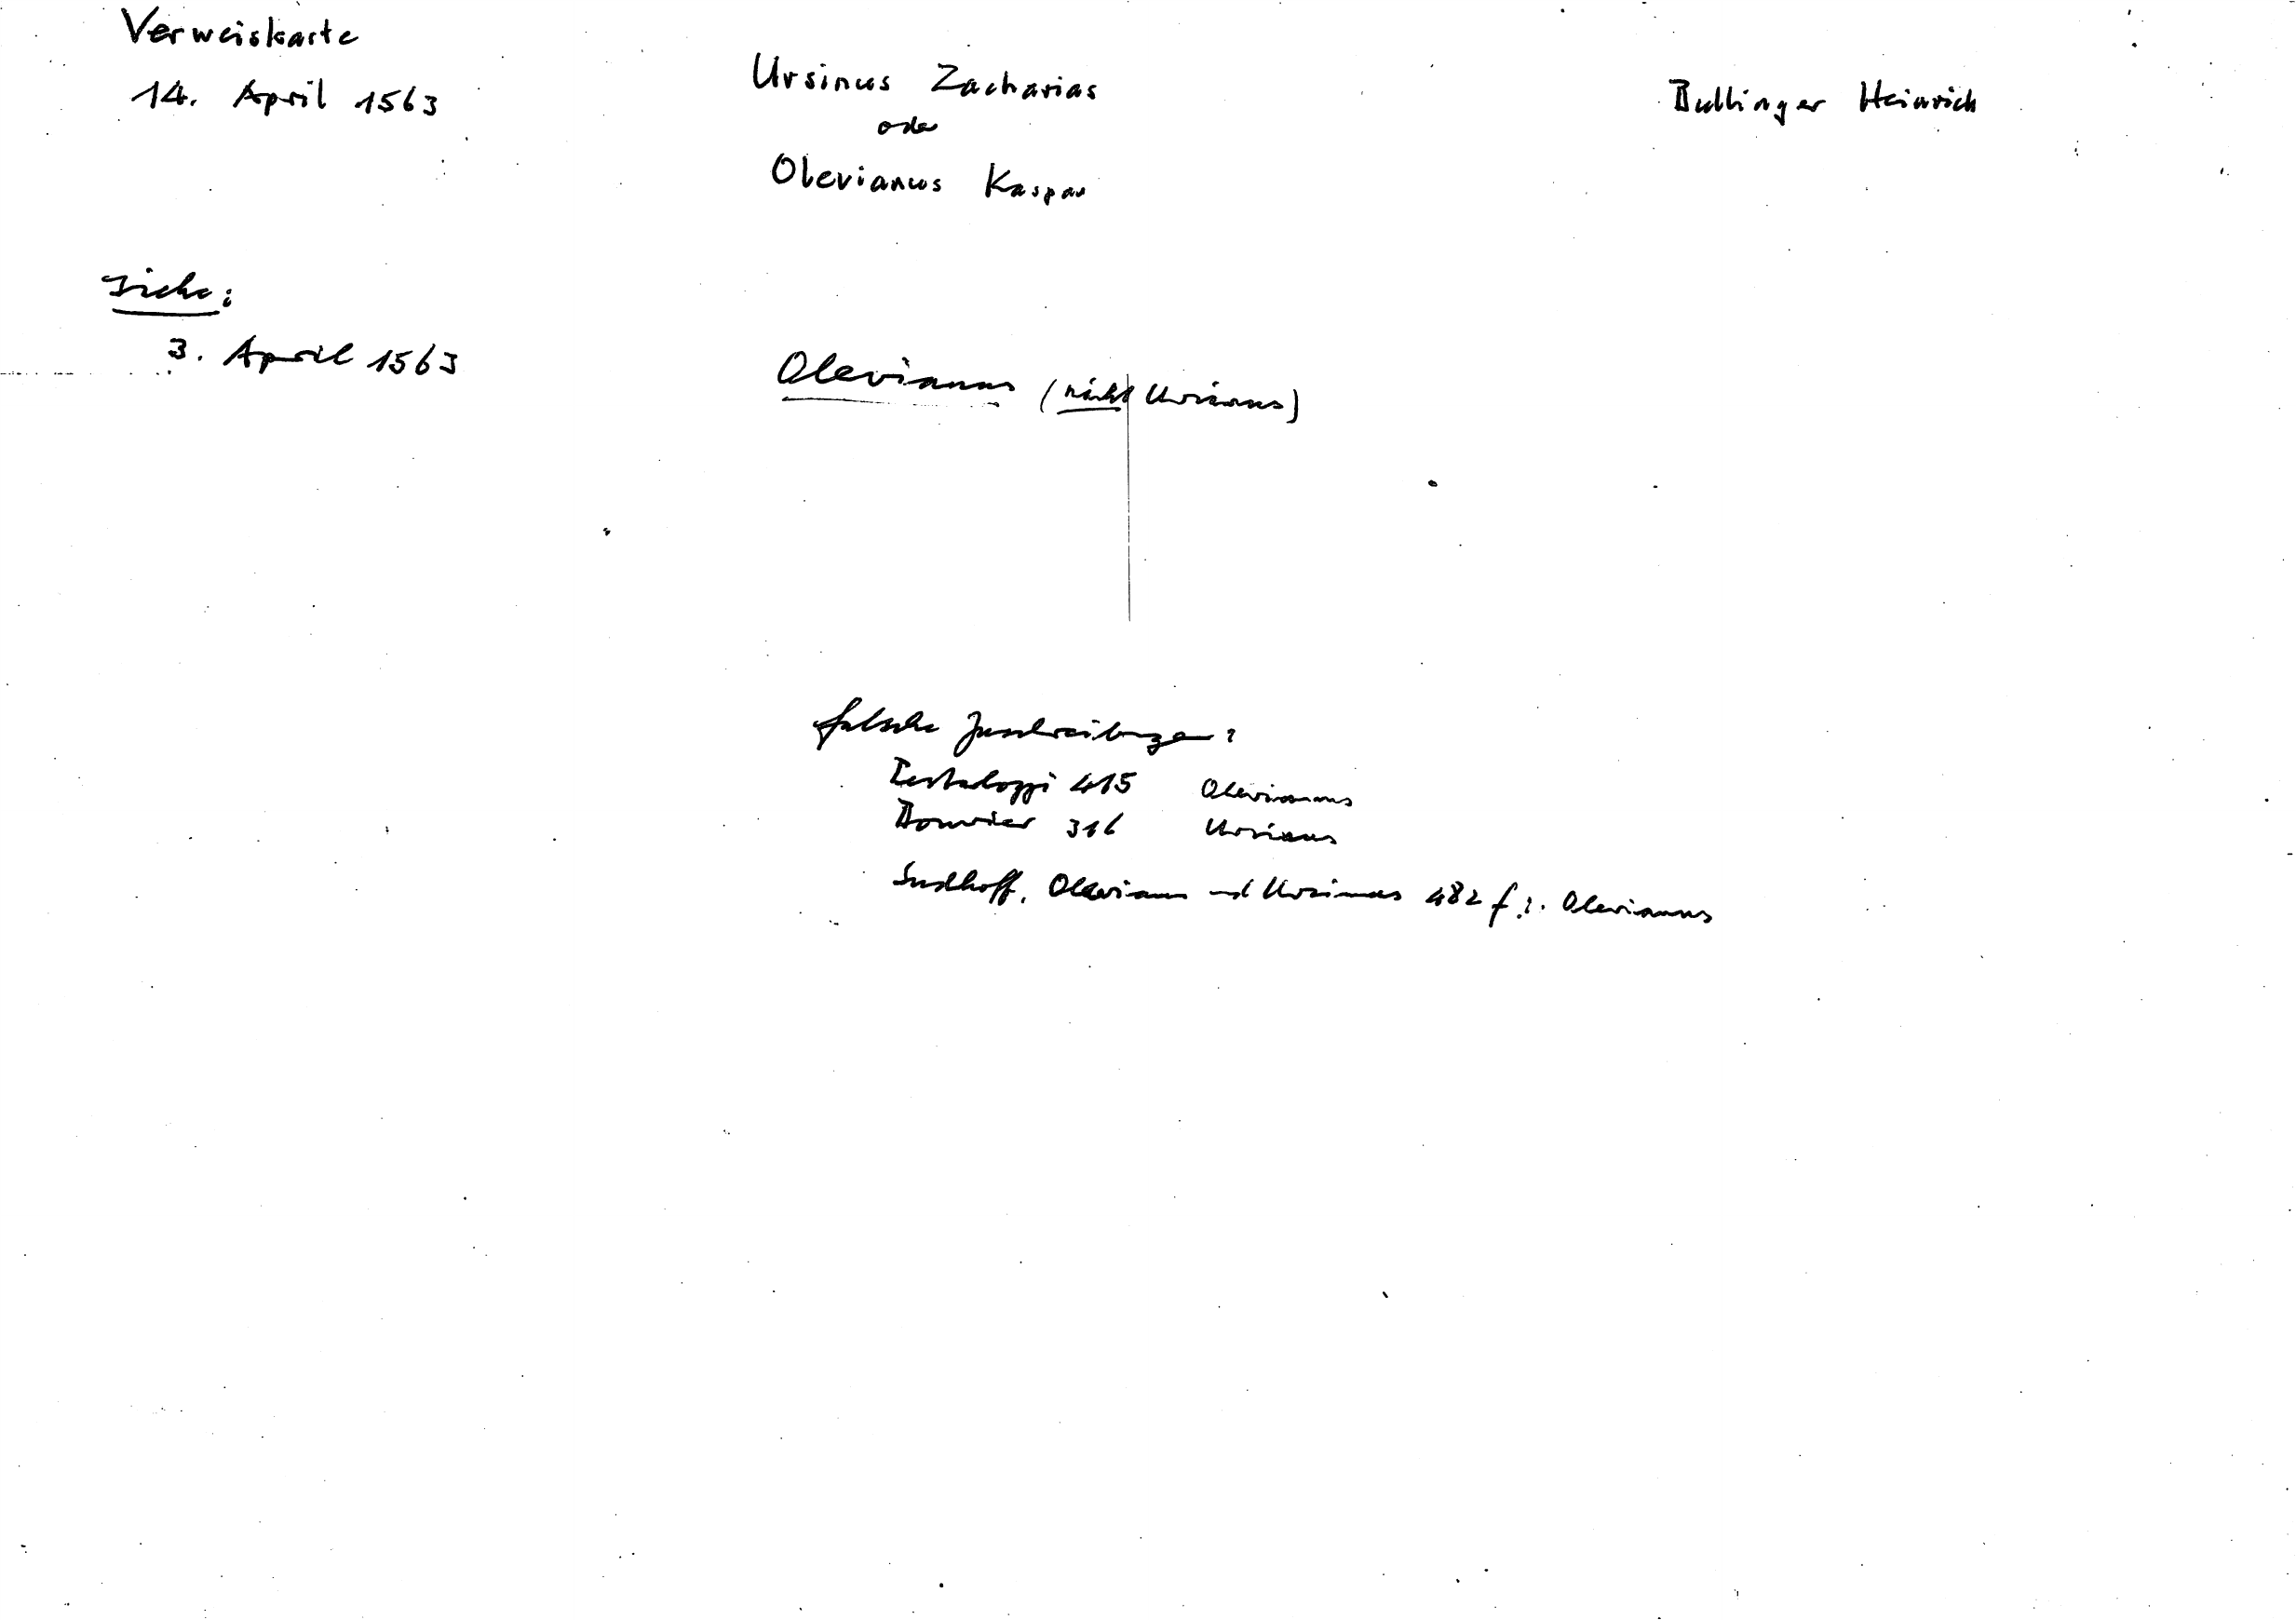 Verweiskarte
14. April 1563
Ursinus Zacharias
oder
Olevianus Kaspar
Bullinger Heinrich
Siehe:
3. April 1563
Olevianus (nicht Ursinus)
falsche Zuschreibungen:
Pestalozzi 415 Olevianus
Bouvier 316 Ursinus
Sudhoff, Olevianus und Ursinus 482 f.: Olevianus